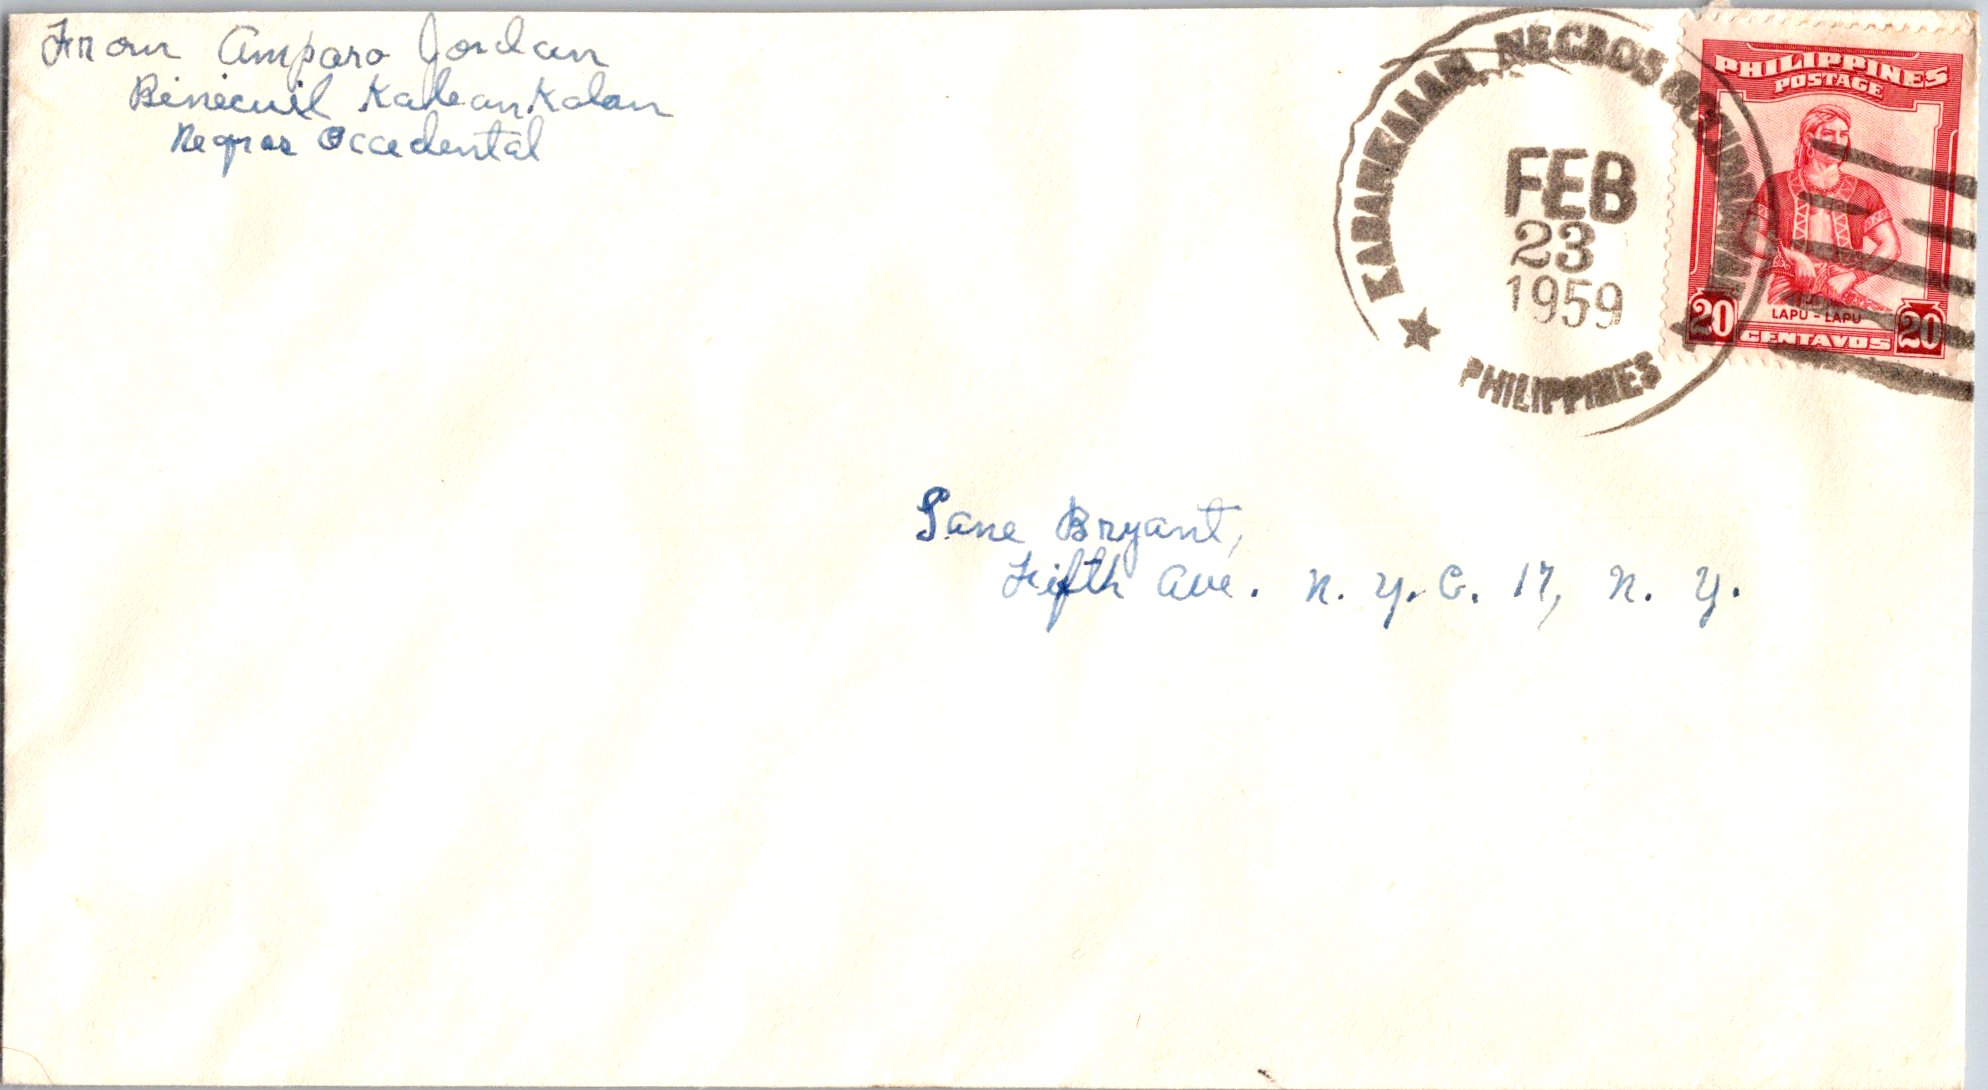 From Amparo Jordan
Binicuil Kabankalan
Negros Occedental
KABANKALAN, NEGROS OCCIDENTAL
FEB
23
1959
PHILIPPINES
PHILIPPINES
POSTAGE
LAPU - LAPU
20 CENTAVOS 20
Lane Bryant,
Fifth Ave. N. Y. C. 17, N. Y.